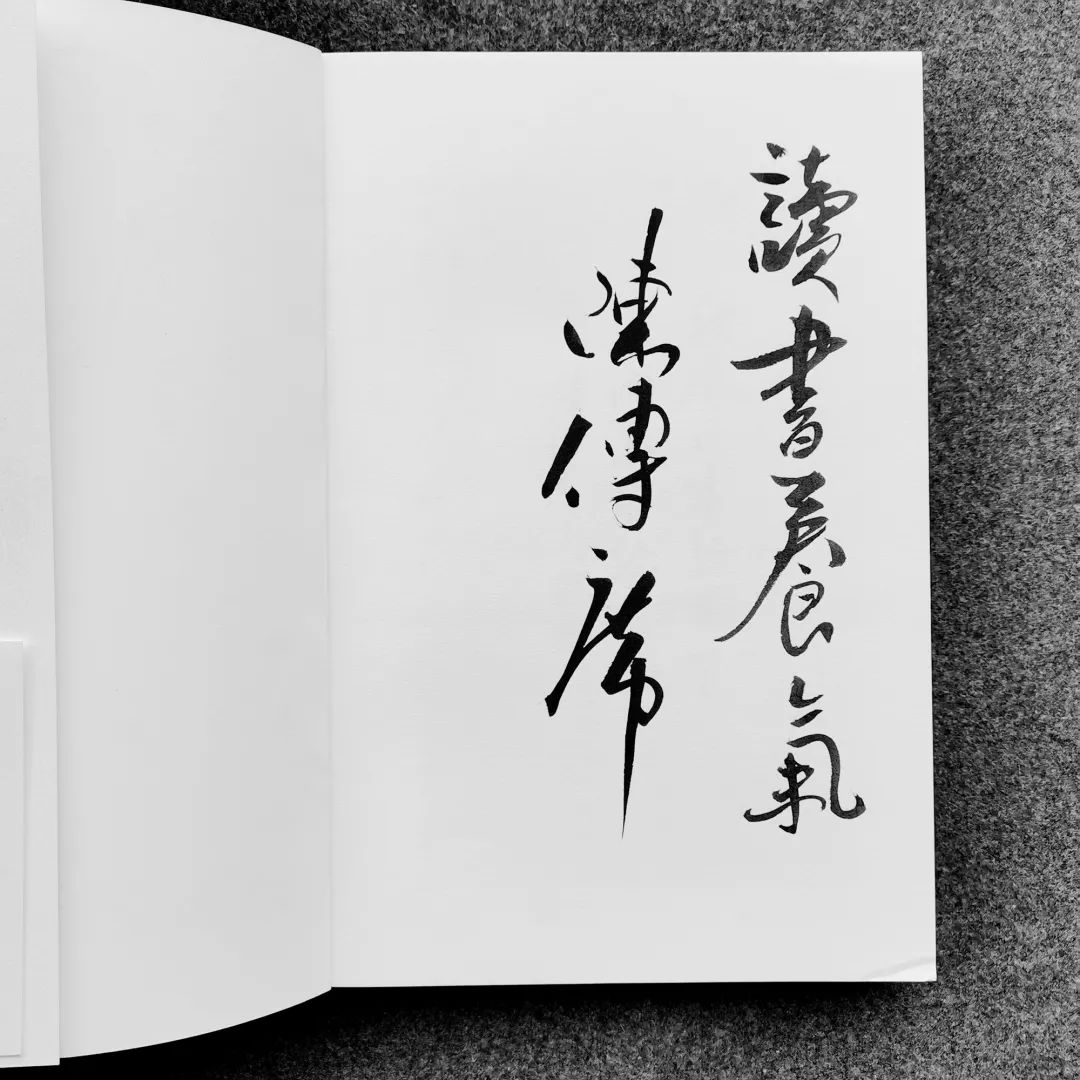 讀書養氣
陳傳席